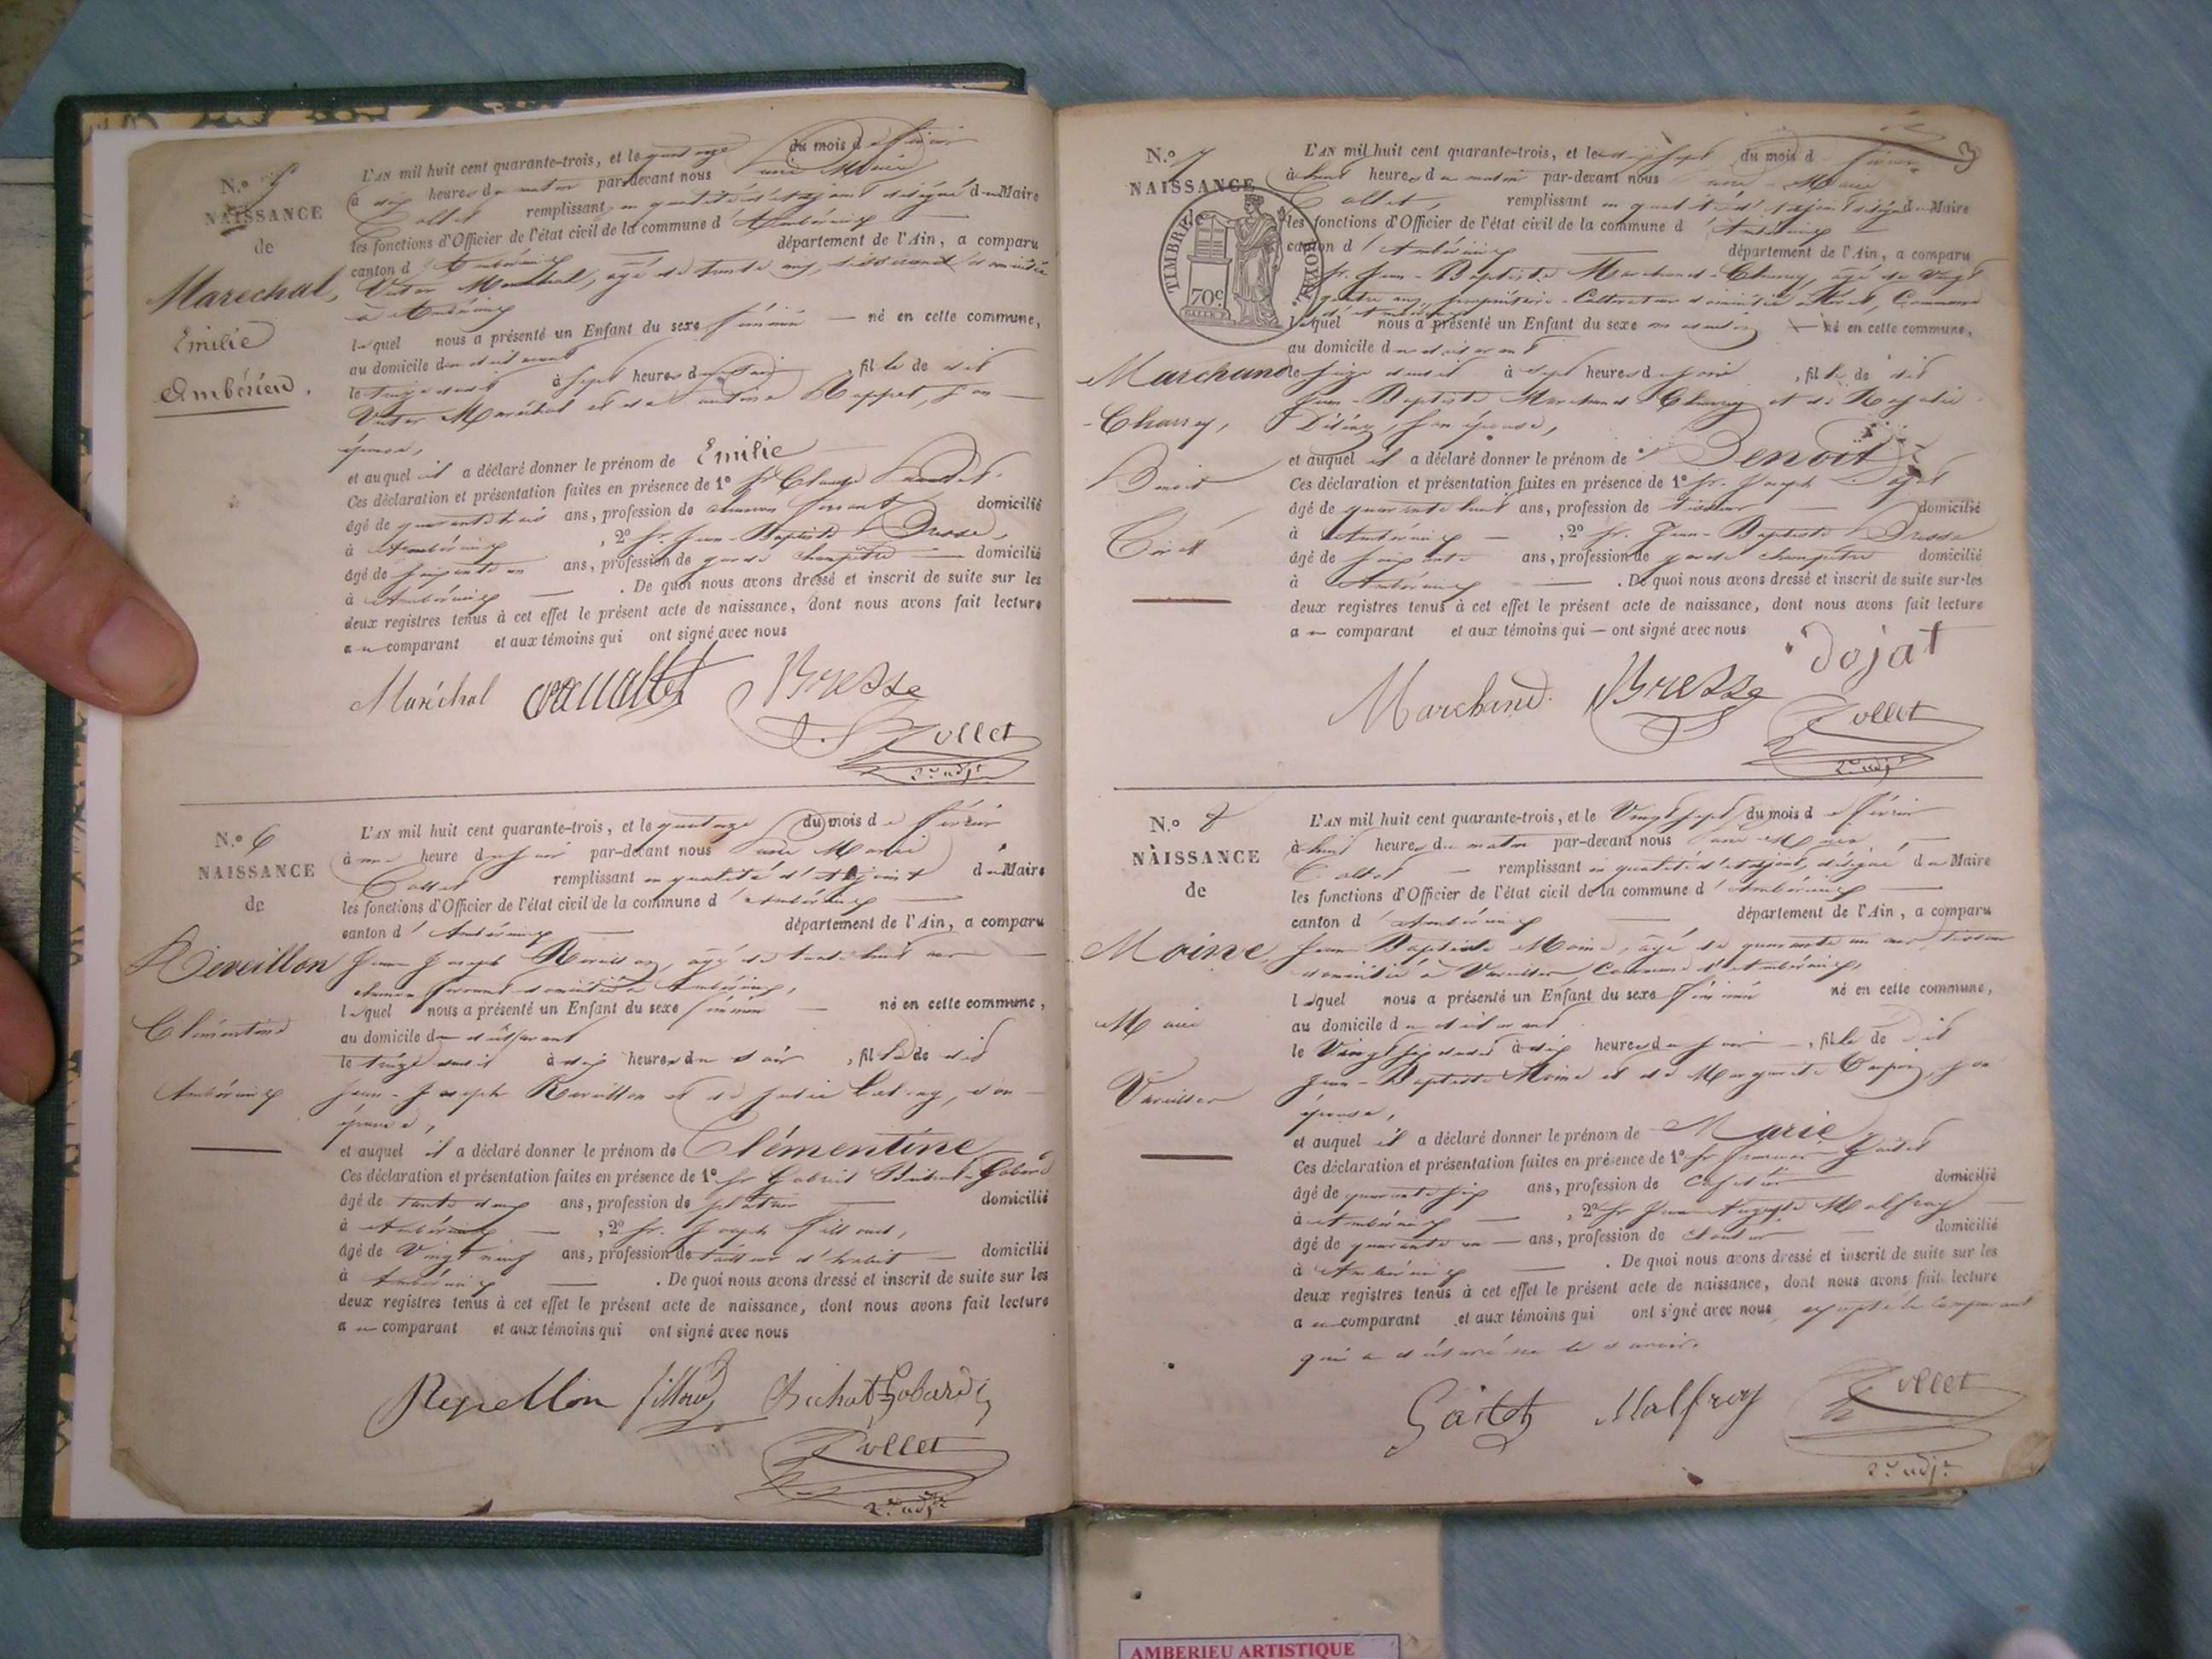 N.º 5
NAISSANCE
de
Marechal,
Emilie
Ambérieu.
L'AN mil huit cent quarante-trois, et le quatorze du mois de février
à dix heures du matin par-devant nous
remplissant en qualité d'adjoint délégué du Maire
les fonctions d'Officier de l'état civil de la commune d'Ambérieux
canton d'Ambérieux département de l'Ain, a comparu
Victor Maréchal, âgé de trente ans, domicilié
à Ambérieux
lequel nous a présenté un Enfant du sexe féminin né en cette commune,
au domicile du déclarant
le treize dudit à sept heures du , fille de dit
Victor Maréchal et de Rappet, son
épouse,
et auquel il a déclaré donner le prénom de Emilie
Ces déclaration et présentation faites en présence de 1º Sr Claude
âgé de quarante trois ans, profession de domicilié
à Ambérieux , 2º Sr. Jean-Baptiste Bresse,
âgé de soixante un ans, profession de garde champêtre domicilié
à Ambérieux . De quoi nous avons dressé et inscrit de suite sur les
deux registres tenus à cet effet le présent acte de naissance, dont nous avons fait lecture
au comparant et aux témoins qui ont signé avec nous
Maréchal Bresse
Tollet
2e adjt
N.º 6
NAISSANCE
de
Réveillon
Clémentine
Ambérieux
L'AN mil huit cent quarante-trois, et le quatorze du mois de février
à une heure du soir par-devant nous
remplissant en qualité d'adjoint du Maire
les fonctions d'Officier de l'état civil de la commune d'Ambérieux
canton d'Ambérieux département de l'Ain, a comparu
Jean Joseph Reveillon, âgé de trente huit ans
domicilié à Ambérieux,
lequel nous a présenté un Enfant du sexe féminin né en cette commune,
au domicile du déclarant
le treize dudit à dix heures du soir , fille de dit
Jean-Joseph Reveillon et de Julie , son
épouse,
et auquel il a déclaré donner le prénom de Clémentine
Ces déclaration et présentation faites en présence de 1º Sr Gabriel Bichat-Gobard
âgé de trente deux ans, profession de plâtrier domicilié
à Ambérieux , 2º Sr. Joseph Silloud,
âgé de vingt neuf ans, profession de tailleur d'habits domicilié
à Ambérieux . De quoi nous avons dressé et inscrit de suite sur les
deux registres tenus à cet effet le présent acte de naissance, dont nous avons fait lecture
au comparant et aux témoins qui ont signé avec nous
Reveillon Silloud Bichat Gobard
Tollet
2e adjt
3
N.º 7
NAISSANCE
de
TIMBRE ROYAL
70c
Marchand
-Charrey,
Benoit
Tiret
L'AN mil huit cent quarante-trois, et le dix sept du mois de février
à huit heures du matin par-devant nous
remplissant en qualité d'adjoint délégué du Maire
les fonctions d'Officier de l'état civil de la commune d'Ambérieux
canton d'Ambérieux département de l'Ain, a comparu
Sr. Jean-Baptiste Marchand-Charrey, âgé de vingt
quatre ans, propriétaire-Cultivateur domicilié à Tiret, Commune
d'Ambérieux
lequel nous a présenté un Enfant du sexe masculin né en cette commune,
au domicile du déclarant
le seize dudit à sept heures du soir , fils de dit
Jean-Baptiste Marchand-Charrey et de
son épouse,
et auquel il a déclaré donner le prénom de Benoit
Ces déclaration et présentation faites en présence de 1º Sr. Joseph Dojat
âgé de quarante huit ans, profession de tisseur domicilié
à Ambérieux , 2º Sr. Jean-Baptiste Bresse
âgé de soixante ans, profession de garde champêtre domicilié
à Ambérieux . De quoi nous avons dressé et inscrit de suite sur les
deux registres tenus à cet effet le présent acte de naissance, dont nous avons fait lecture
au comparant et aux témoins qui — ont signé avec nous
Dojat
Marchand Bresse
Tollet
2e adjt
N.º 8
NAISSANCE
de
Moine,
Marie
Vareilles
L'AN mil huit cent quarante-trois, et le Vingt sept du mois de février
à huit heures du matin par-devant nous
remplissant en qualité d'adjoint, délégué du Maire
les fonctions d'Officier de l'état civil de la commune d'Ambérieux
canton d'Ambérieux département de l'Ain, a comparu
Jean Baptiste Moine, âgé de quarante un ans,
domicilié à Vareilles, Commune d'Ambérieux,
lequel nous a présenté un Enfant du sexe féminin né en cette commune,
au domicile du déclarant
le Vingt six dudit à dix heures du soir , fille de dit
Jean-Baptiste Moine et de Marguerite , son
épouse,
et auquel il a déclaré donner le prénom de Marie
Ces déclaration et présentation faites en présence de 1º Sr
âgé de quarante six ans, profession de Cafetier domicilié
à Ambérieux , 2º Sr Jean Auguste Malfroy
âgé de quarante un ans, profession de domicilié
à Ambérieux . De quoi nous avons dressé et inscrit de suite sur les
deux registres tenus à cet effet le présent acte de naissance, dont nous avons fait lecture
au comparant et aux témoins qui ont signé avec nous, excepté le comparant
qui a déclaré ne le savoir.
Malfroy
Tollet
2e adjt
AMBERIEU ARTISTIQUE